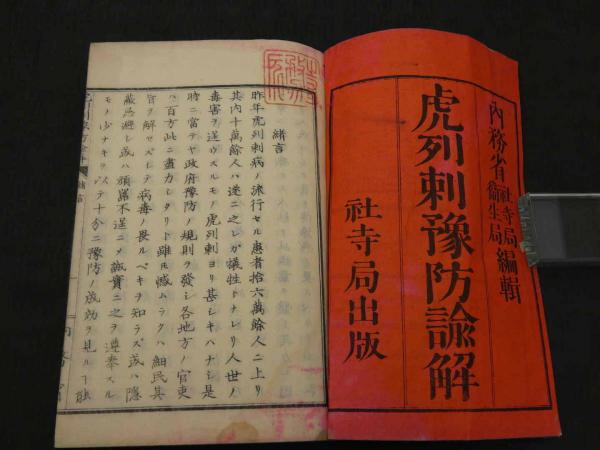 內務省 社寺局 衞生局 編輯
虎列剌豫防諭解
社寺局出版
緒言
昨年虎列剌病ノ旅行セル患者拾六萬餘人ニ上リ
其内十萬餘人ハ遂ニ之レガ犠牲トナレリ人世ノ
毒害ヲ逞ウスルモノ虎列剌ヨリ甚シキハナシ是
時ニ當テヤ政府豫防ノ規則ヲ發シ各地方ノ官吏
ハ百方此ニ盡力シタリト雖モ憾ムラクハ細民其
旨ヲ解セズシテ病毒ノ畏ルベキヲ知ラズ或ハ隱
蔽忌避シ或ハ頑嚚不逞ニメ誠實ニ之ヲ遵奉スル
モノ少ナキヲ以テ十分ニ豫防ノ成効ヲ見ルヿ能